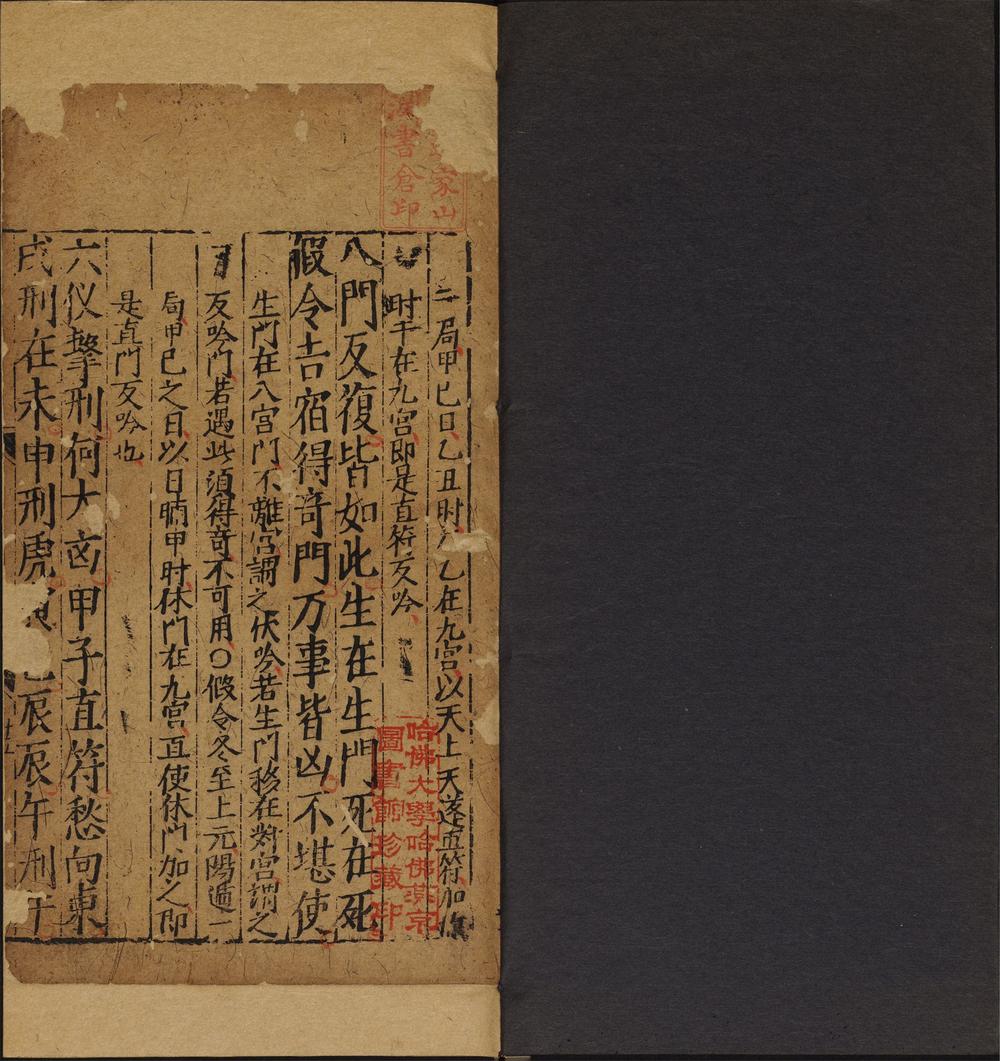 局甲巳日乙丑时乙在九宫以天上天蓬直符加
时干在九宫即是直符反吟
八門反復皆如此生在生門死在死
假令吉宿得奇門万事皆凶不堪使
生门在八宫门不離宫謂之伏吟若生门移在对宫謂之
反吟门若遇此須得奇不可用〇假令冬至上元陽遁一
局甲巳之日以日晡甲时休门在九宫直使休门加之即
是直门反吟也
六仪擊刑何大凶甲子直符愁向東
戌刑在未申刑虎辰辰午刑午
家山
書倉印
哈佛大學哈佛燕京
圖書館珍藏印